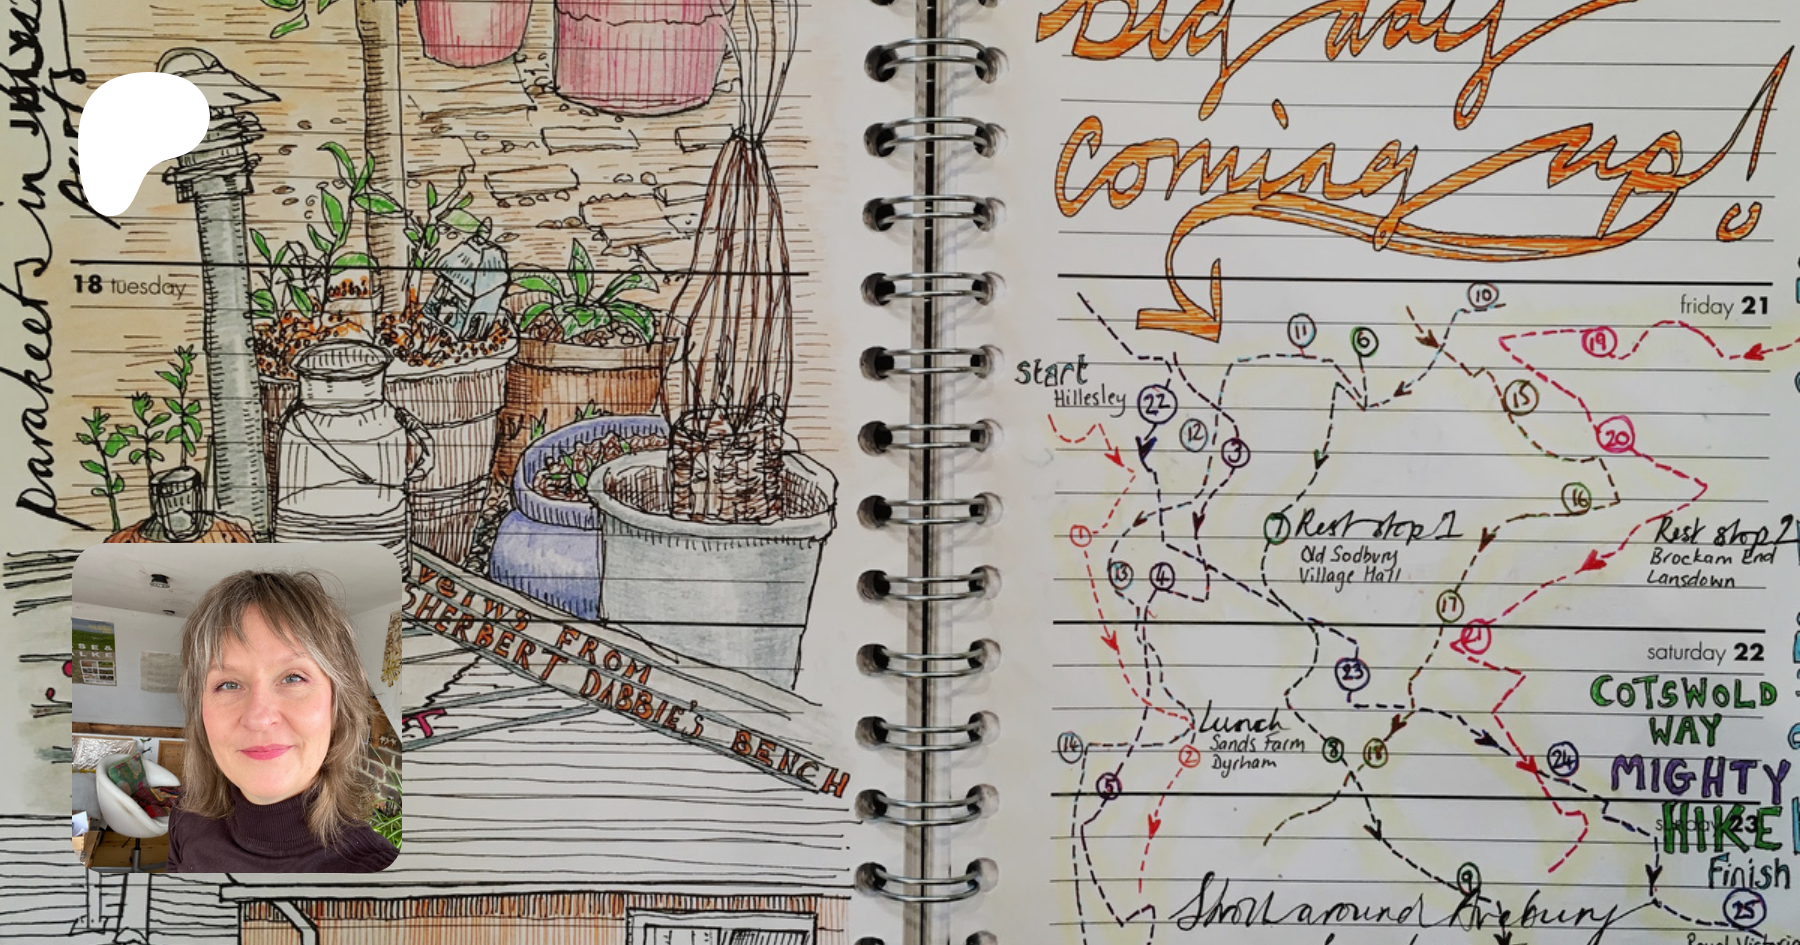 parakeets in
18 tuesday
VEIWS FROM
SHERBERT DABBIE'S BENCH
Big day
coming up!
friday 21
10
11
6
19
Start
Hillesley
22
12
3
15
20
16
1
7
Rest stop 1
Old Sodbury
Village Hall
Rest stop 2
Brockam End
Lansdown
13
4
17
21
saturday 22
23
COTSWOLD
WAY
MIGHTY
HIKE
Lunch
Sands Farm
Dyrham
14
2
8
18
24
5
sunday 23
Finish
9
25
Stroll around Avebury